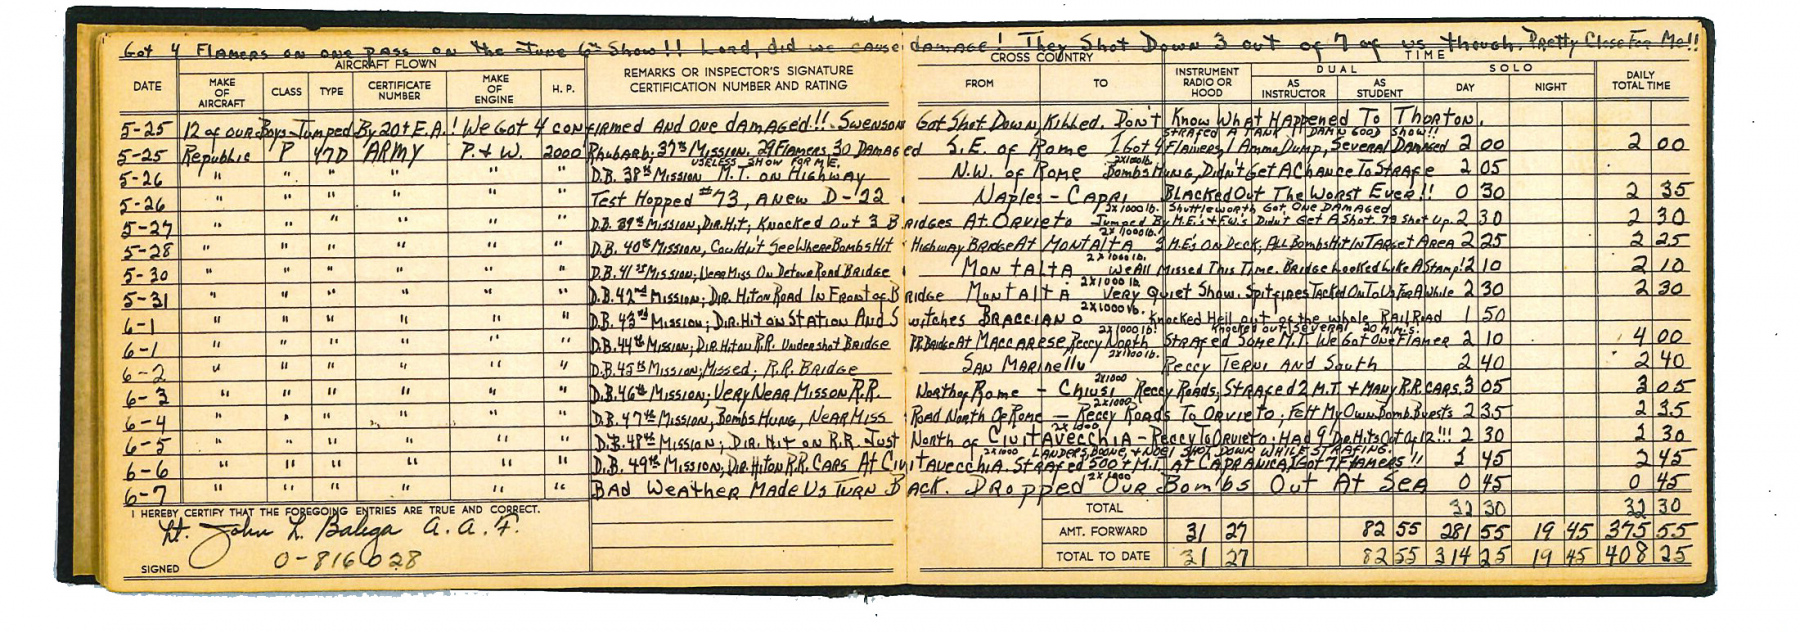 Got 4 Flamers on one pass on the June 6th Show!! Lord, did we cause damage! They Shot Down 3 out of 7 of us though. Pretty Close For Me!!
AIRCRAFT FLOWN CROSS COUNTRY TIME
DATE MAKE OF AIRCRAFT CLASS TYPE CERTIFICATE NUMBER MAKE OF ENGINE H. P. REMARKS OR INSPECTOR'S SIGNATURE CERTIFICATION NUMBER AND RATING FROM TO INSTRUMENT RADIO OR HOOD DUAL AS INSTRUCTOR AS STUDENT SOLO DAY NIGHT DAILY TOTAL TIME
5-25 12 of our Boys Jumped By 20+ E.A.! We Got 4 confirmed And One damaged!!. Swenson Got Shot Down, Killed. Don't Know What Happened To Thorton.
Strafed A Tank!! Damn Good Show!!
5-25 Republic P 47D ARMY P. + W. 2000 Rhubarb; 37th Mission. 29 Flamers, 30 Damaged S.E. of Rome I Got 4 Flamers, 1 Ammo Dump, Several Damaged 2 00 2 00
Useless Show For Me. 2x1000 lb.
5-26 " " " " " " D.B. 38th Mission M.T. on Highway N.W. of Rome Bombs Hung, Didn't Get A Chance To Strafe 2 05
5-26 " " " " " " Test Hopped #73, A New D-22 Naples - Capri Blacked Out The Worst Ever!! 0 30 2 35
2x1000 lb. Shuttleworth Got One Damaged
5-27 " " " " " " D.B. 39th Mission, Dir. Hit, Knocked Out 3 Bridges At Orvieto Jumped By M.E.'s + F.W.'s Didn't Get A Shot. 79 Shot Up. 2 30 2 30
2x1000 lb.
5-28 " " " " " " D.B. 40th Mission, Couldn't See Where Bombs Hit Highway Bridge At Montalta 3 M.E.s On Deck, All Bombs Hit In Target Area 2 25 2 25
2x1000 lb.
5-30 " " " " " " D.B. 41st Mission; Near Miss On Detour Road Bridge Montalta We All Missed This Time. Bridge Looked Like A Stamp! 2 10 2 10
2x1000 lb.
5-31 " " " " " " D.B. 42nd Mission; Dir. Hit on Road In Front of Bridge Montalta Very Quiet Show. Spitfires Tacked On To Us For A While 2 30 2 30
2x1000 lb.
6-1 " " " " " " D.B. 43rd Mission; Dir. Hit on Station And Switches Bracciano Knocked Hell out of the whole Rail Road 1 50
2x1000 lb. Knocked out Several 20 M.M.'s.
6-1 " " " " " " D.B. 44th Mission; Dir. Hit on R.R. Undershot Bridge R.R. Bridge At Maccarese, Reccy North Strafed Some M.T. We Got One Flamer 2 10 4 00
2x1000 lb.
6-2 " " " " " " D.B. 45th Mission; Missed; R.R. Bridge San Marinella Reccy Terni And South 2 40 2 40
2x1000
6-3 " " " " " " D.B. 46th Mission; Very Near Miss on R.R. North of Rome - Chiusi Reccy Roads, Strafed 2 M.T. + Many R.R. Cars. 3 05 3 05
2x1000
6-4 " " " " " " D.B. 47th Mission, Bombs Hung, Near Miss Road North Of Rome - Reccy Roads To Orvieto; Felt My Own Bomb Bursts 2 35 2 35
2x1000
6-5 " " " " " " D.B. 48th Mission; Dir. Hit on R.R. Just North of Civitavecchia - Reccy To Orvieto; Had 9 Dir. Hits Out Of 12!!! 2 30 2 30
2x1000 Landers, Boone, + Noel Shot Down While Strafing.
6-6 " " " " " " D.B. 49th Mission; Dir. Hit on R.R. Cars At Civitavecchia. Strafed 500+ M.T. At Capranica, I Got 7 Flamers!! 2 45 2 45
2x1000
6-7 " " " " " " Bad Weather Made Us Turn Back. Dropped Our Bombs Out At Sea 0 45 0 45
I HEREBY CERTIFY THAT THE FOREGOING ENTRIES ARE TRUE AND CORRECT. TOTAL 32 30 32 30
Lt. John L. Baliga A. A. F. AMT. FORWARD 31 27 82 55 281 55 19 45 375 55
SIGNED O-816028 TOTAL TO DATE 31 27 82 55 314 25 19 45 408 25